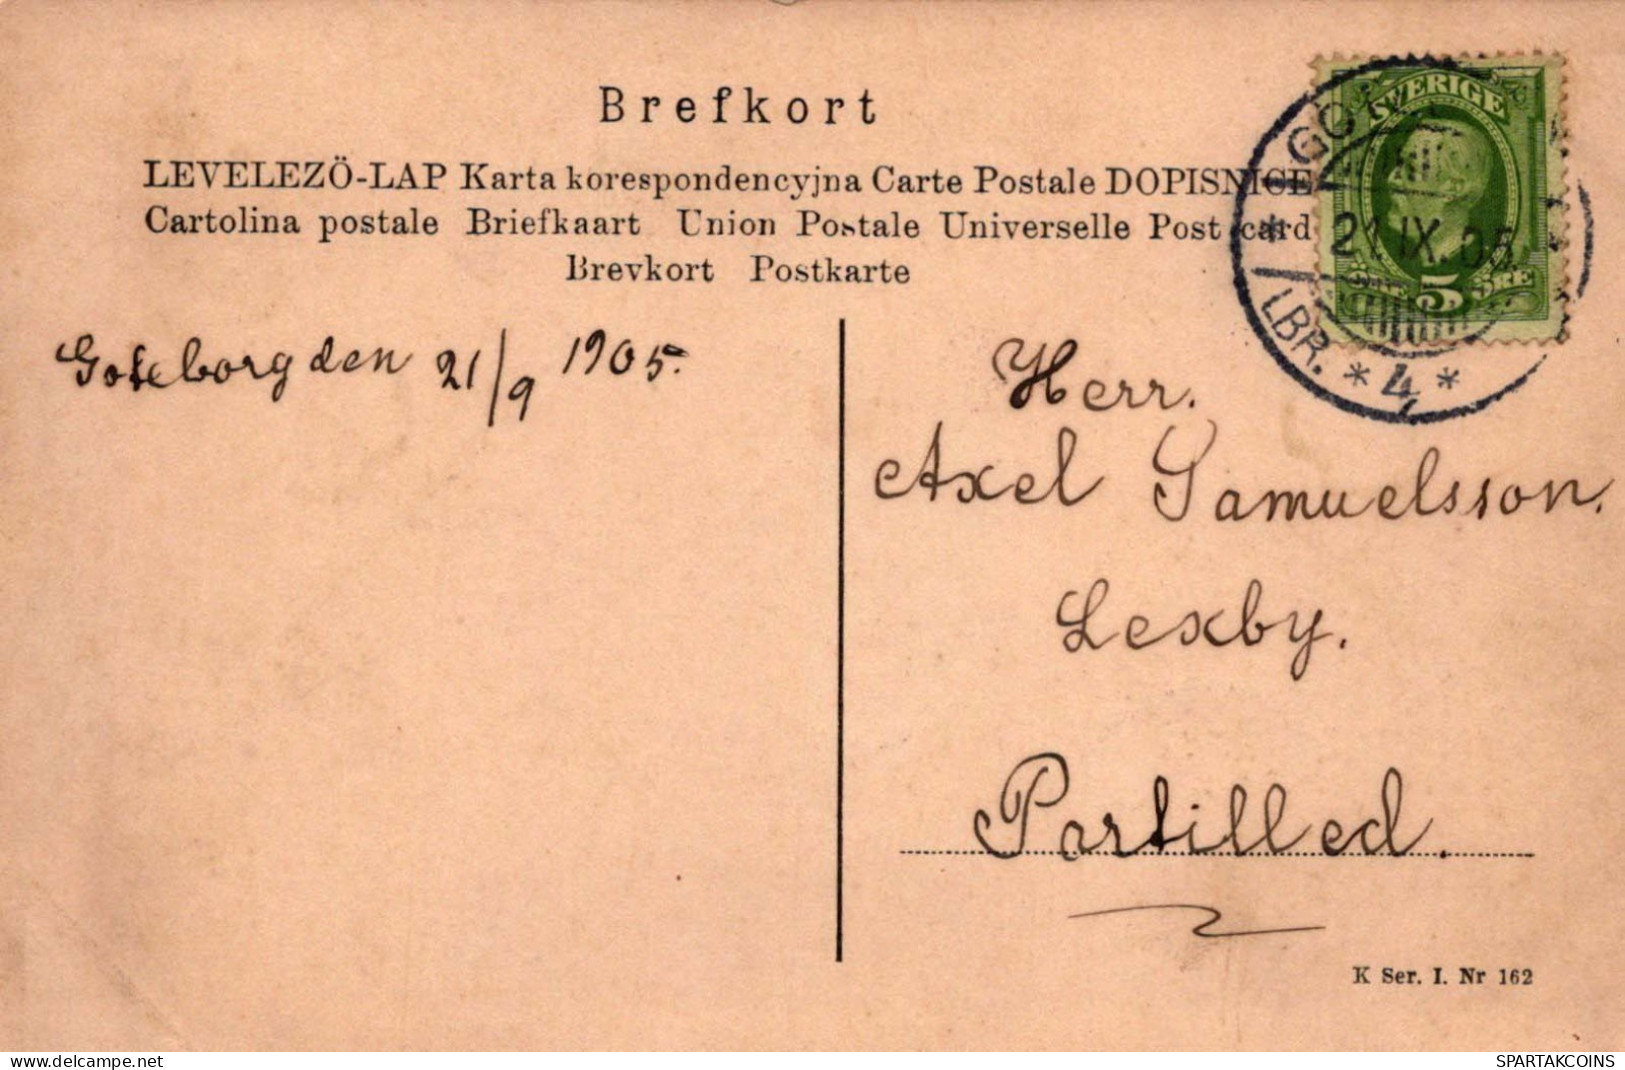 Brefkort
LEVELEZÖ-LAP Karta korespondencyjna Carte Postale DOPISNICE
Cartolina postale Briefkaart Union Postale Universelle Post card
Brevkort Postkarte
SVERIGE
5 ÖRE
21.IX.05
LBR.
* 4 *
Goteborg den 21/9 1905.
Herr.
Axel Samuelsson.
Lexby.
Partilled.
K Ser. I. Nr 162
www.delcampe.net
SPARTAKCOINS